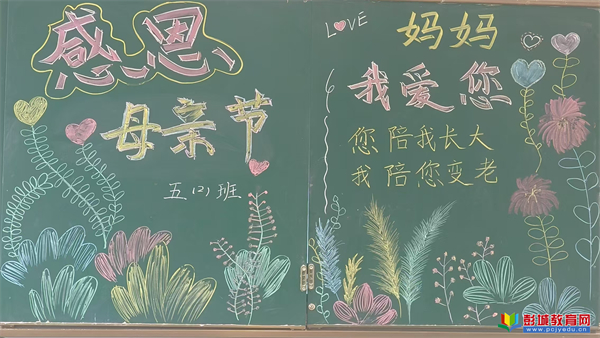 感恩
母亲节
五(2)班
LOVE
妈妈
我爱您
您陪我长大
我陪您变老
彭城教育网
www.pcjyedu.cn